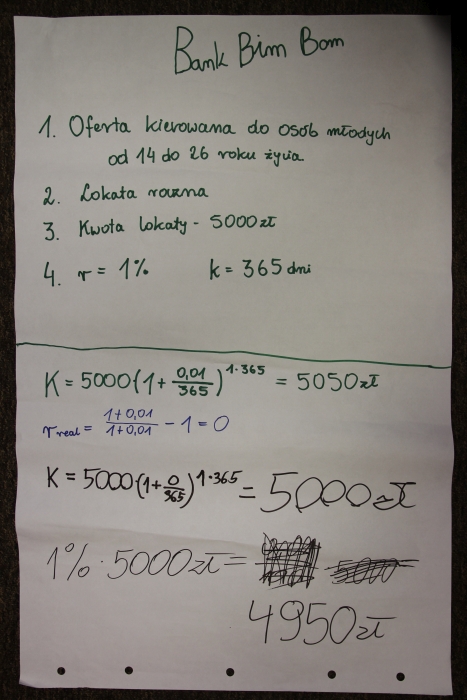 Bank Bim Bom
1. Oferta kierowana do osób młodych
od 14 do 26 roku życia
2. Lokata roczna
3. Kwota lokaty - 5000 zł
4. r = 1% k = 365 dni
K = 5000(1 + 0,01/365)^1·365 = 5050 zł
r real = 1+0,01/1+0,01 - 1 = 0
K = 5000(1 + 0/365)^1·365 = 5000 zł
1% · 5000 zł = 5000
4950 zł